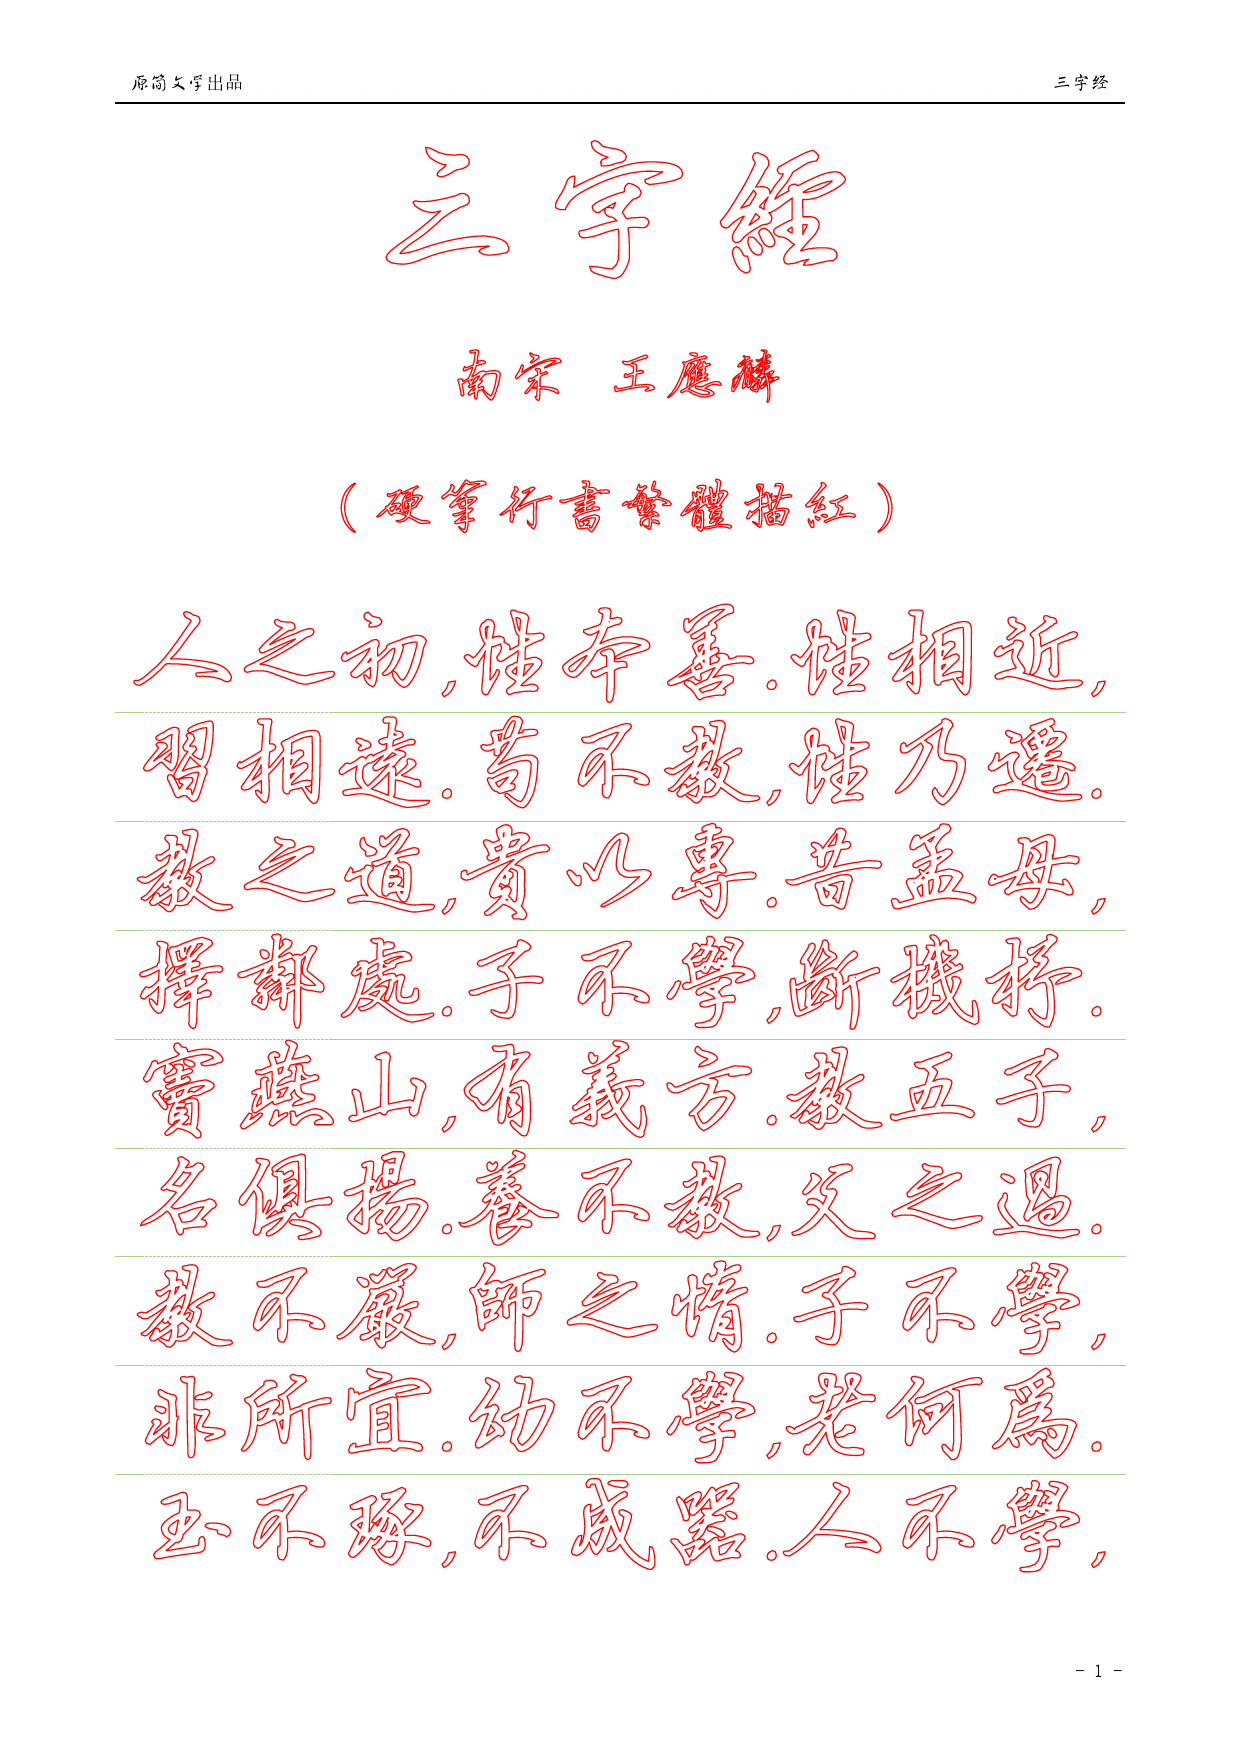 原简文学出品 三字经
三字經
南宋 王應麟
(硬筆行書繁體描紅)
人之初,性本善.性相近,
習相遠.苟不教,性乃遷.
教之道,貴以專.昔孟母,
擇鄰處.子不學,斷機杼.
竇燕山,有義方.教五子,
名俱揚.養不教,父之過.
教不嚴,師之惰.子不學,
非所宜.幼不學,老何爲.
玉不琢,不成器.人不學,
- 1 -